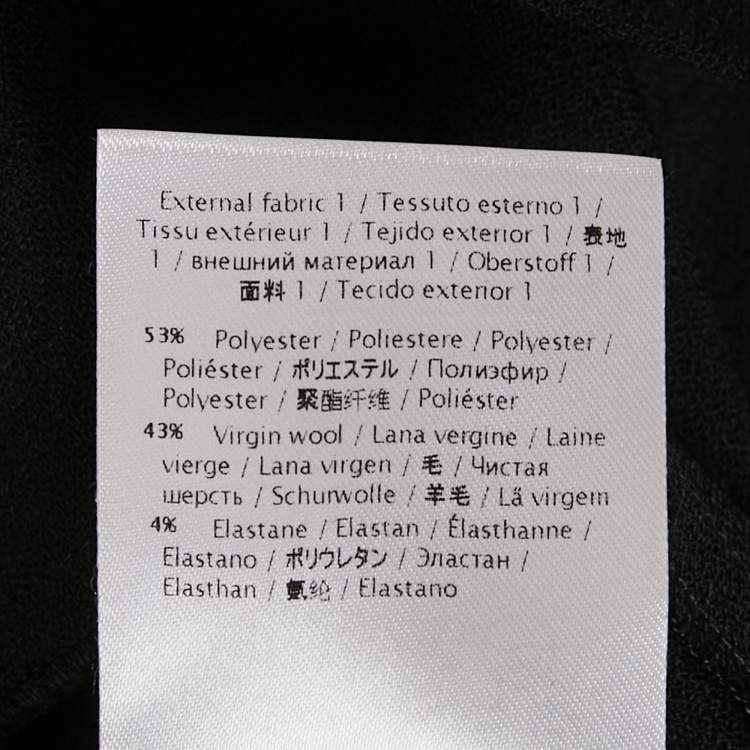 External fabric 1 / Tessuto esterno 1 /
Tissu extérieur 1 / Tejido exterior 1 / 表地
1 / внешний материал 1 / Oberstoff 1 /
面料 1 / Tecido exterior 1
53% Polyester / Poliestere / Polyester /
Poliéster / ポリエステル / Полиэфир /
Polyester / 聚酯纤维 / Poliéster
43% Virgin wool / Lana vergine / Laine
vierge / Lana virgen / 毛 / Чистая
шерсть / Schurwolle / 羊毛 / Lã virgem
4% Elastane / Elastan / Élasthanne /
Elastano / ポリウレタン / Эластан /
Elasthan / 氨纶 / Elastano